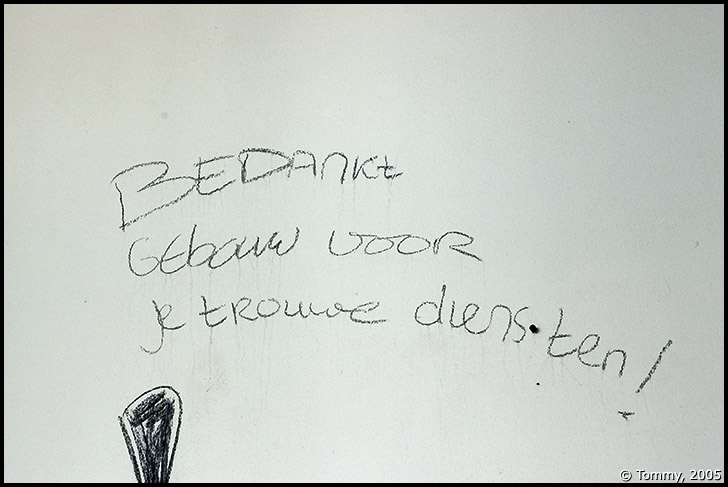 BEDANKt
GEbouw VOOR
je tROUWE diens.ten!
© Tommy, 2005